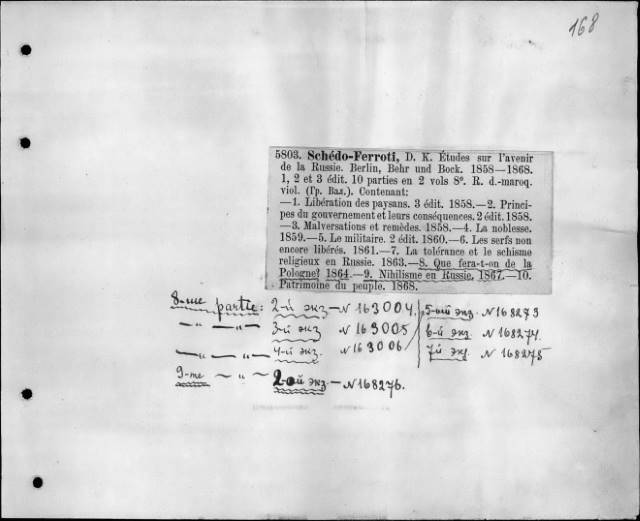 168
5803. Schédo-Ferroti, D. K. Études sur l'avenir
de la Russie. Berlin, Behr und Bock. 1858—1868.
1, 2 et 3 édit. 10 parties en 2 vols 8°. R. d.-maroq.
viol. (Гр. Вал.). Contenant:
—1. Libération des paysans. 3 édit. 1858.—2. Princi-
pes du gouvernement et leurs conséquences. 2 édit. 1858.
—3. Malversations et remèdes. 1858.—4. La noblesse.
1859.—5. Le militaire. 2 édit. 1860.—6. Les serfs non
encore libérés. 1861.—7. La tolérance et le schisme
religieux en Russie. 1863.—8. Que fera-t-on de la
Pologne? 1864.—9. Nihilisme en Russie. 1867.—10.
Patrimoine du peuple. 1868.
8-me partie: 2-й экз — N 163004.
— " — " — 3-й экз N 163005
— " — " — 4-й экз. N 163006
9-me — " — 2ой экз — N 168276.
5-ой экз. N 168273
6-й экз. N 168274.
7й экз. N 168275